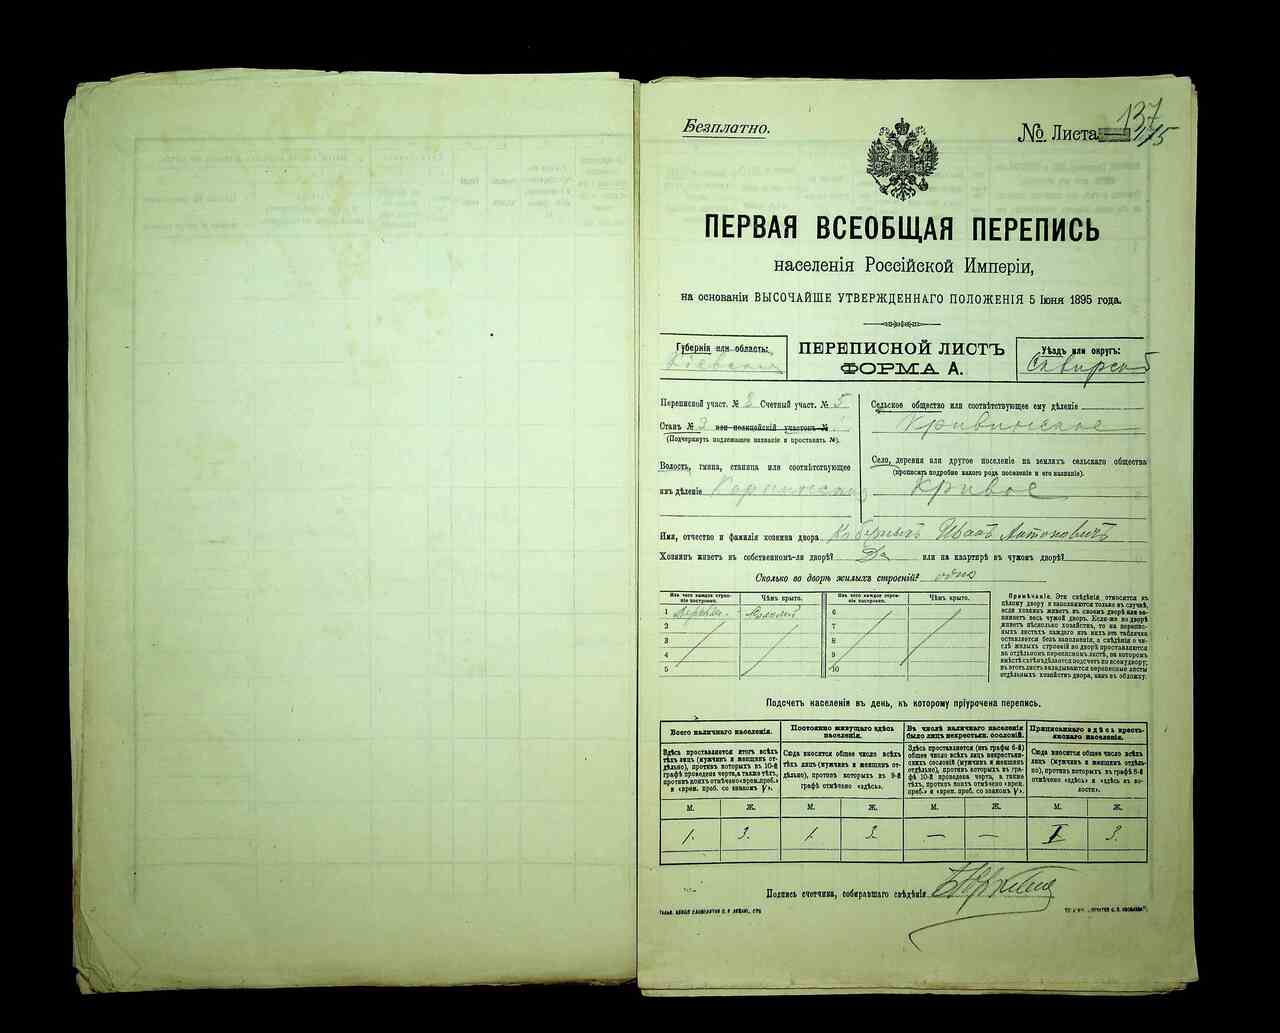 Безплатно.
№ Листа 137
175
ПЕРВАЯ ВСЕОБЩАЯ ПЕРЕПИСЬ
населенія Россійской Имперіи,
на основаніи ВЫСОЧАЙШЕ УТВЕРЖДЕННАГО ПОЛОЖЕНІЯ 5 Іюня 1895 года.
Губернія или область:
Кіевская
ПЕРЕПИСНОЙ ЛИСТЪ
ФОРМА А.
Уѣздъ или округъ:
Сквирскій
Переписной участ. № 3 Счетный участ. № 5
Станъ № 3 или полицейскій участокъ №
(Подчеркнуть подлежащее названіе и проставить №).
Волость, гмина, станица или соотвѣтствующее
имъ дѣленіе Корнинская
Сельское общество или соотвѣтствующее ему дѣленіе
Кривинское
Село, деревня или другое поселеніе на земляхъ сельскаго общества
(прописать подробно какого рода поселеніе и его названіе).
Кривое
Имя, отчество и фамилія хозяина двора Иванъ Антоновичъ
Хозяинъ живетъ въ собственномъ-ли дворѣ? Да или на квартирѣ въ чужомъ дворѣ?
Сколько во дворѣ жилыхъ строеній? одно
Изъ чего каждое строеніе построено.
Чѣмъ крыто.
Изъ чего каждое строеніе построено.
Чѣмъ крыто.
1 Дерева. Соломой 6
2 7
3 8
4 9
5 10
Примѣчаніе. Эти свѣдѣнія относятся къ
цѣлому двору и заполняются только въ случаѣ,
если хозяинъ живетъ въ своемъ дворѣ или занимаетъ весь чужой дворъ. Если-же во дворѣ
живетъ нѣсколько хозяйствъ, то на переписныхъ листахъ каждаго изъ нихъ эта табличка
оставляется безъ заполненія, а свѣдѣнія о числѣ жилыхъ строеній во дворѣ проставляются
на отдѣльномъ переписномъ листѣ, на которомъ
вмѣстѣ съ тѣмъ дѣлается подсчетъ по всему двору;
въ этотъ листъ вкладываются переписные листы
отдѣльныхъ хозяйствъ двора, какъ въ обложку.
Подсчетъ населенія въ день, къ которому пріурочена перепись.
Всего наличнаго населенія.
Здѣсь проставляется итогъ всѣхъ
тѣхъ лицъ (мужчинъ и женщинъ отдѣльно), противъ которыхъ въ 10-й
графѣ проведена черта, а также тѣхъ,
противъ коихъ отмѣчено «врем. преб.»
и «врем. преб. со знакомъ V».
Постоянно живущаго здѣсь
населенія.
Сюда вносится общее число всѣхъ
тѣхъ лицъ (мужчинъ и женщинъ отдѣльно), противъ которыхъ въ 9-й
графѣ отмѣчено «здѣсь».
Въ числѣ наличнаго населенія
было лицъ некрестьян. сословій.
Здѣсь проставляется (изъ графы 6-й)
общее число всѣхъ лицъ некрестьянскихъ сословій (мужчинъ и женщинъ
отдѣльно), противъ которыхъ въ графѣ 10-й проведена черта, а также
тѣхъ, противъ коихъ отмѣчено «врем.
преб.» и «врем. преб. со знакомъ V».
Приписаннаго здѣсь крестьянскаго населенія.
Сюда вносится общее число всѣхъ
лицъ (мужчинъ и женщинъ отдѣльно), противъ которыхъ въ графѣ 8-й
отмѣчено «здѣсь» и «здѣсь въ волости».
М. Ж. М. Ж. М. Ж. М. Ж.
1. 3. 1. 3. — — 1 3.
Подпись счетчика, собиравшаго свѣдѣнія